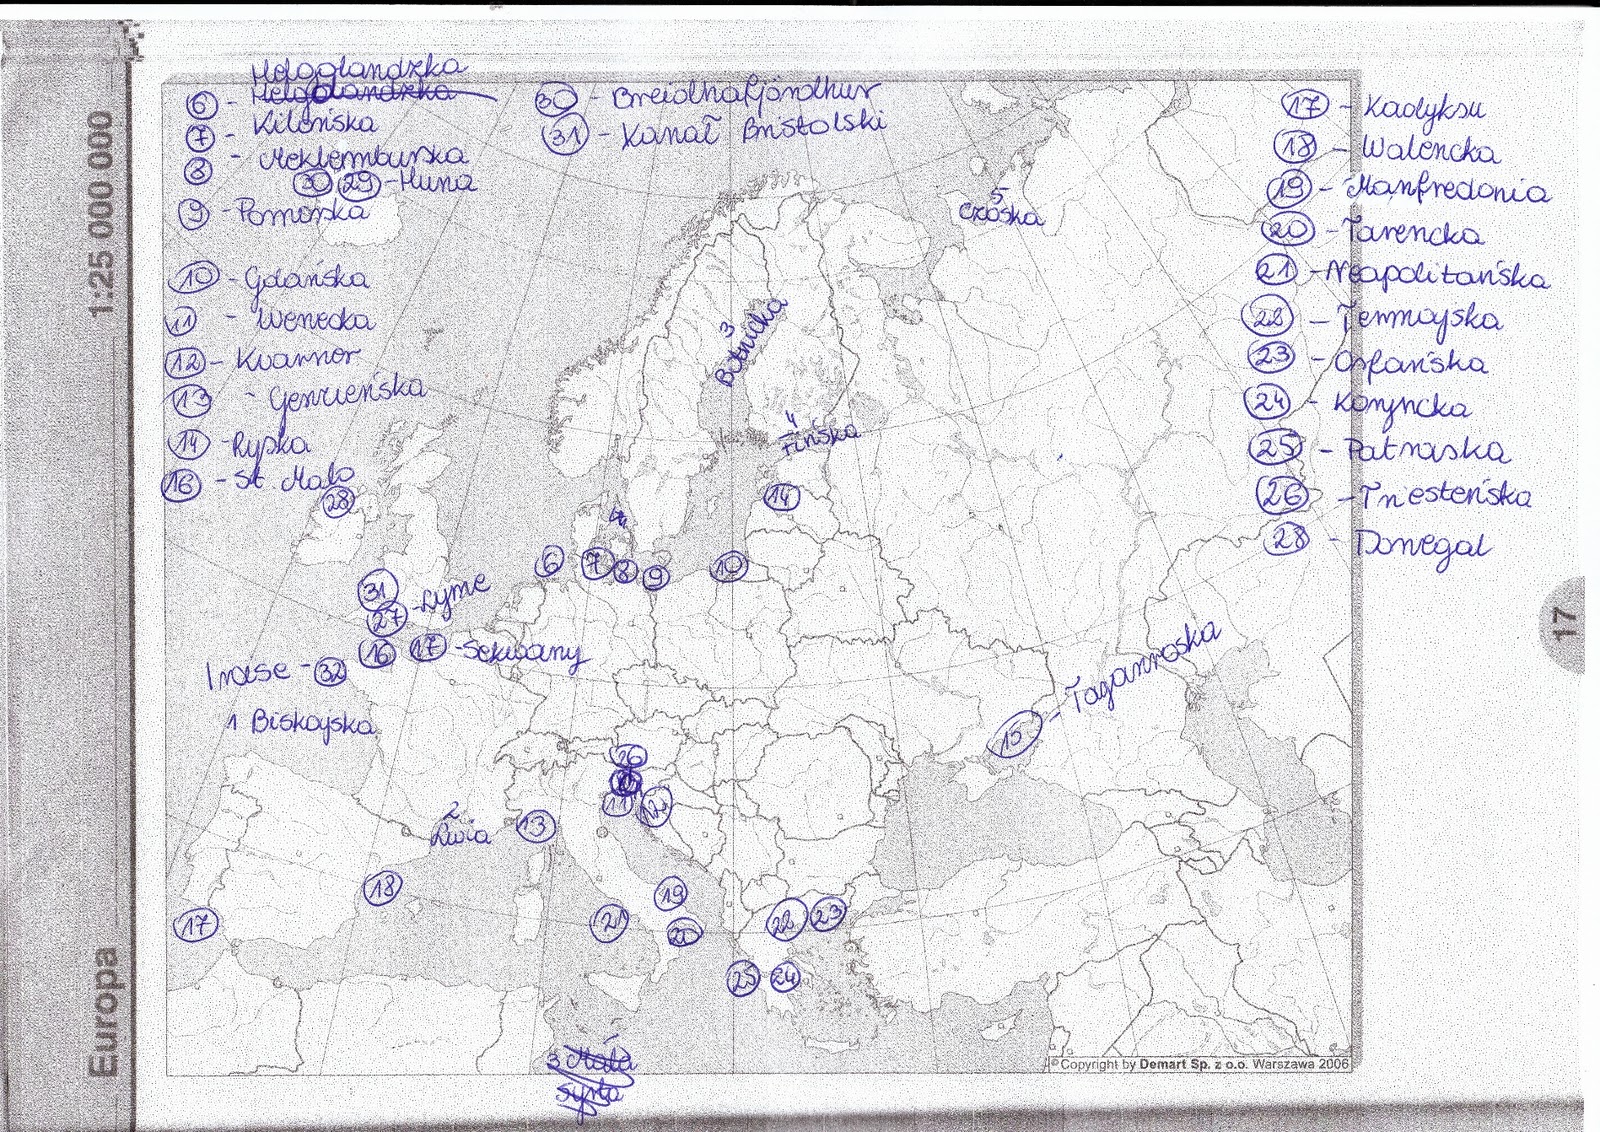 Europa 1:25 000 000
Helgolandzka
6 - Helgolandzka
7 - Kilońska
8 - Meklemburska
30 29 - Huna
9 - Pomorska
10 - Gdańska
11 - Wenecka
12 - Kvarner
13 - Genueńska
14 - Ryska
16 - St. Malo
30 - Breidhafjördhur
31 - Kanał Bristolski
17 - Kadyksu
18 - Walencka
19 - Manfredonia
20 - Tarencka
21 - Neapolitańska
22 - Termajska
23 - Orfańska
24 - Koryncka
25 - Patraska
26 - Triesteńska
28 - Donegal
5
Czoska
3
Botnicka
4
Fińska
28
14
6
7
8
9
10
31
27 - Lyme
16
17 - Sekwany
Iroise - 32
1 Biskajska
15 - Taganroska
26
11
12
2
Lwia
13
18
19
17
21
20
22
23
25
24
3 Mała
Syrta
17
© Copyright by Demart Sp. z o.o. Warszawa 2006